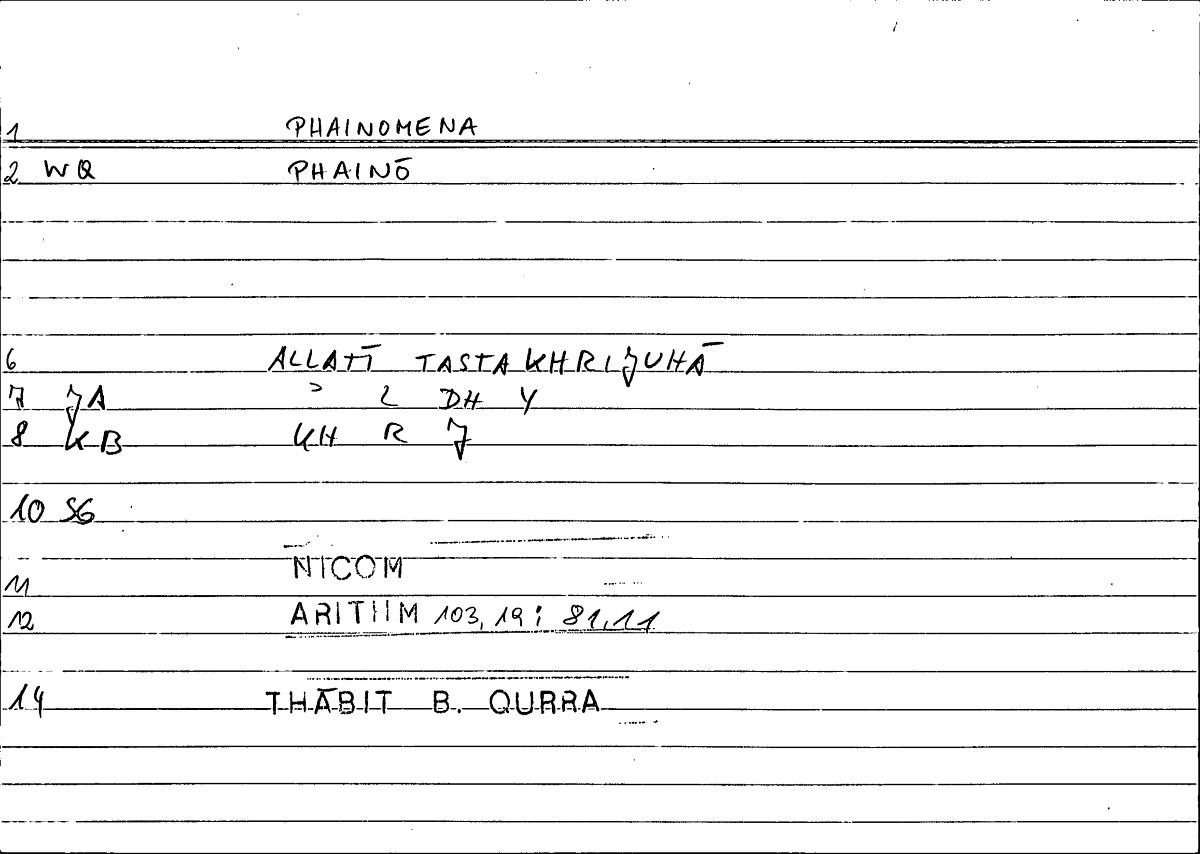 1 PHAINOMENA
2 WQ PHAINŌ
6 ALLATĪ TASTAKHRIJUHĀ
7 JA ʾ L DH Y
8 KB KH R J
10 SG
NICOM
11
12 ARITIIM 103,19; 81,11
14 THĀBIT B. QURRA